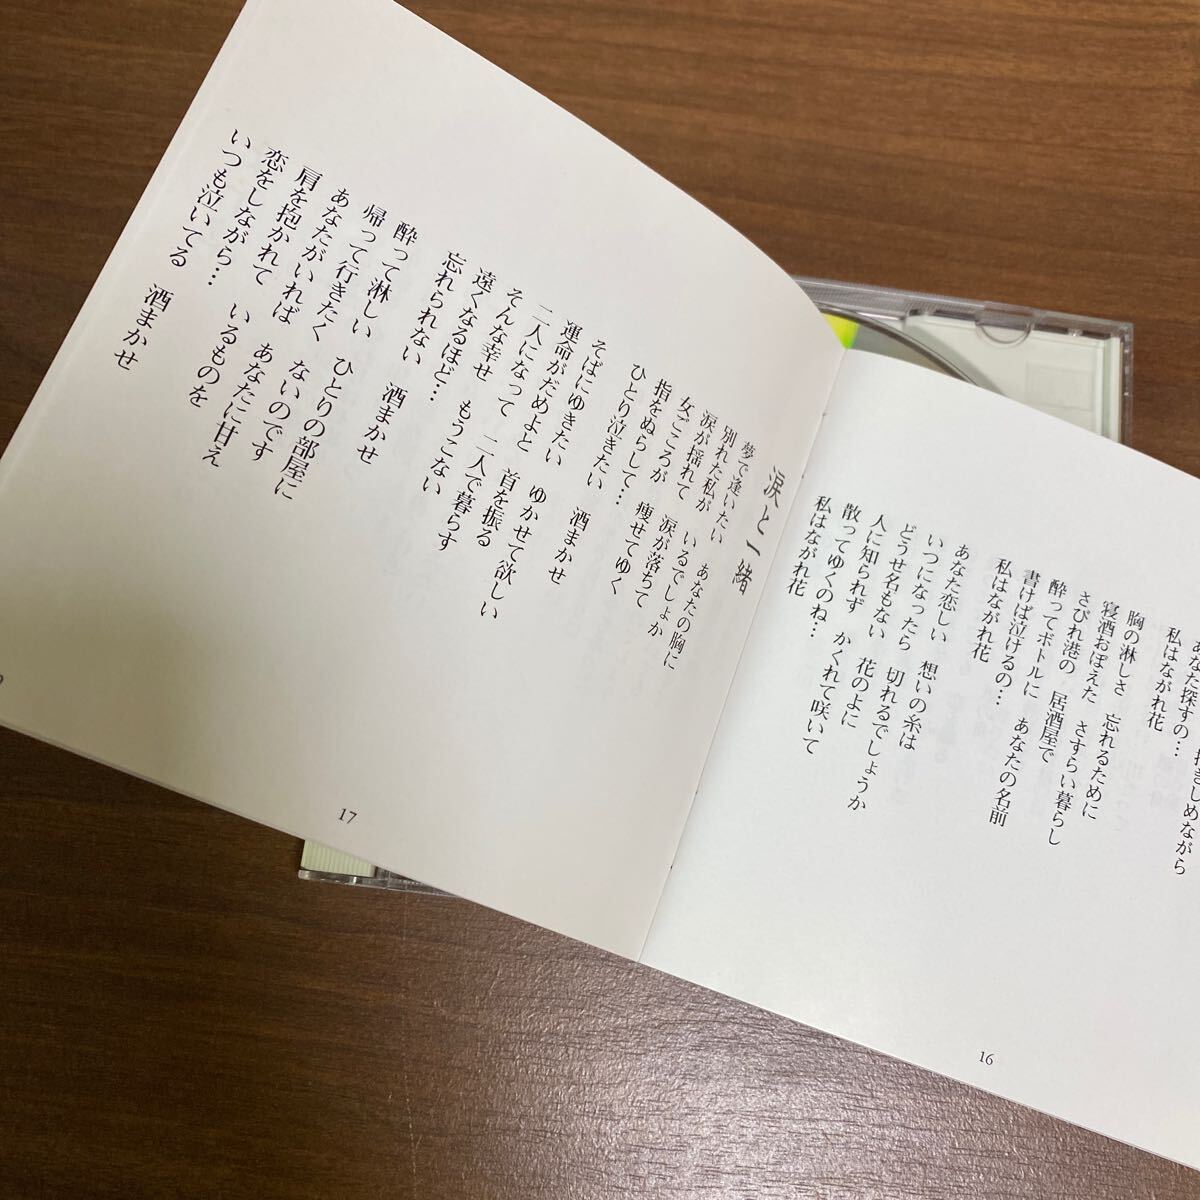 抱きしめながら
あなた探すの…
私はながれ花
胸の淋しさ　忘れるために
寝酒おぼえた　さすらい暮らし
さびれ港の　居酒屋で
酔ってボトルに　あなたの名前
書けば泣けるの…
私はながれ花
あなた恋しい　想いの糸は
いつになったら　切れるでしょうか
どうせ名もない　花のよに
人に知られず　かくれて咲いて
散ってゆくのね…
私はながれ花
16
涙と一緒
夢で逢いたい　あなたの胸に
別れた私が　いるでしょか
涙が揺れて　涙が落ちて
女ごころが　痩せてゆく
指をぬらして…
ひとり泣きたい　酒まかせ
そばにゆきたい　ゆかせて欲しい
運命がだめよと　首を振る
二人になって　二人で暮らす
そんな幸せ　もうこない
遠くなるほど…
忘れられない　酒まかせ
酔って淋しい　ひとりの部屋に
帰って行きたく　ないのです
あなたがいれば　あなたに甘え
肩を抱かれて　いるものを
恋をしながら…
いつも泣いてる　酒まかせ
17